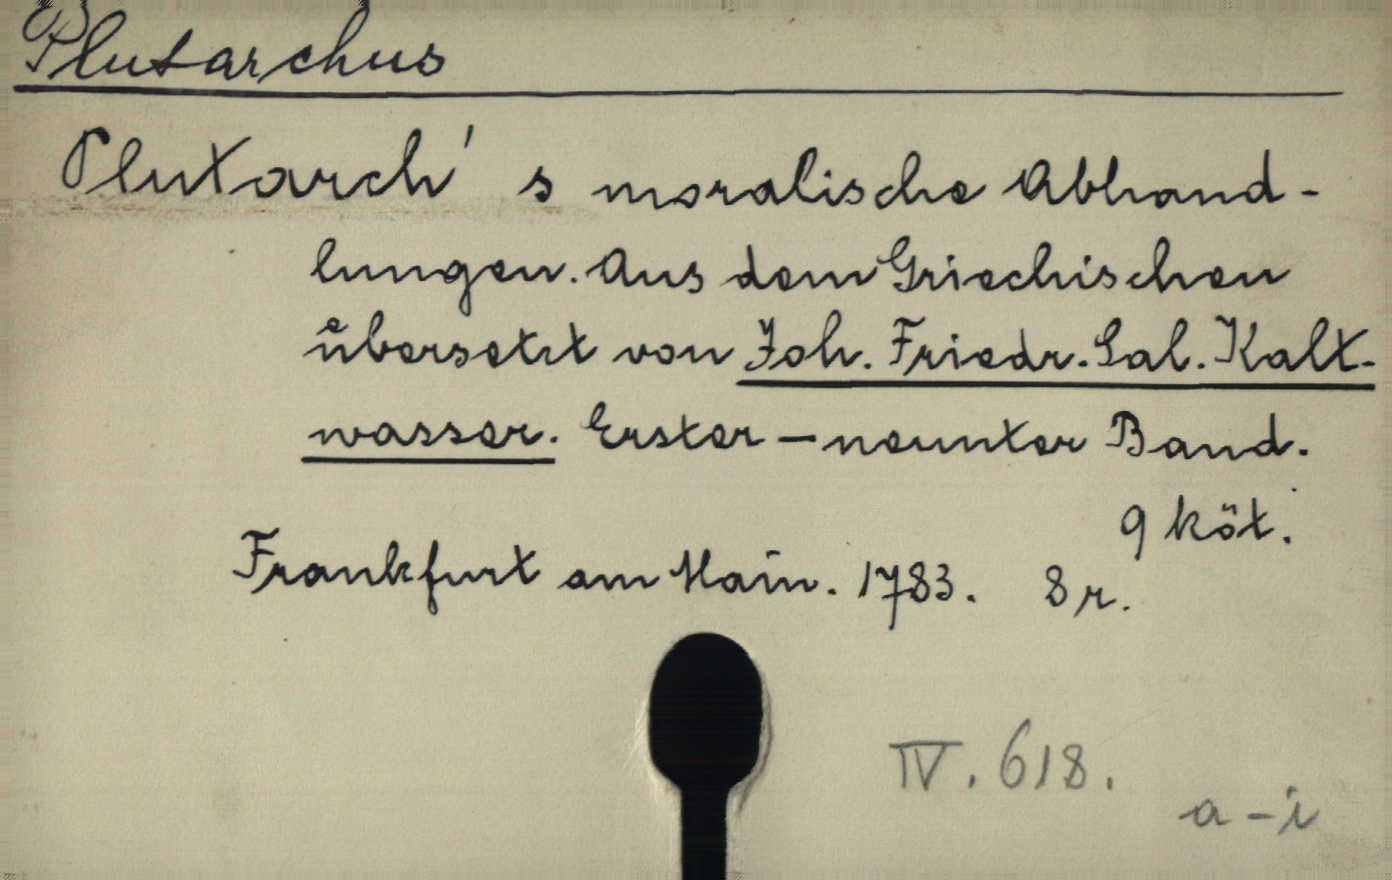 Plutarchus
Plutarch's moralische Abhand-
lungen. Aus dem Griechischen
uͤbersetzt von Joh. Friedr. Sal. Kalt-
wasser. Erster – neunter Band.
9 köt.
Frankfurt am Main. 1783. 8 r.
IV. 618.
a – i